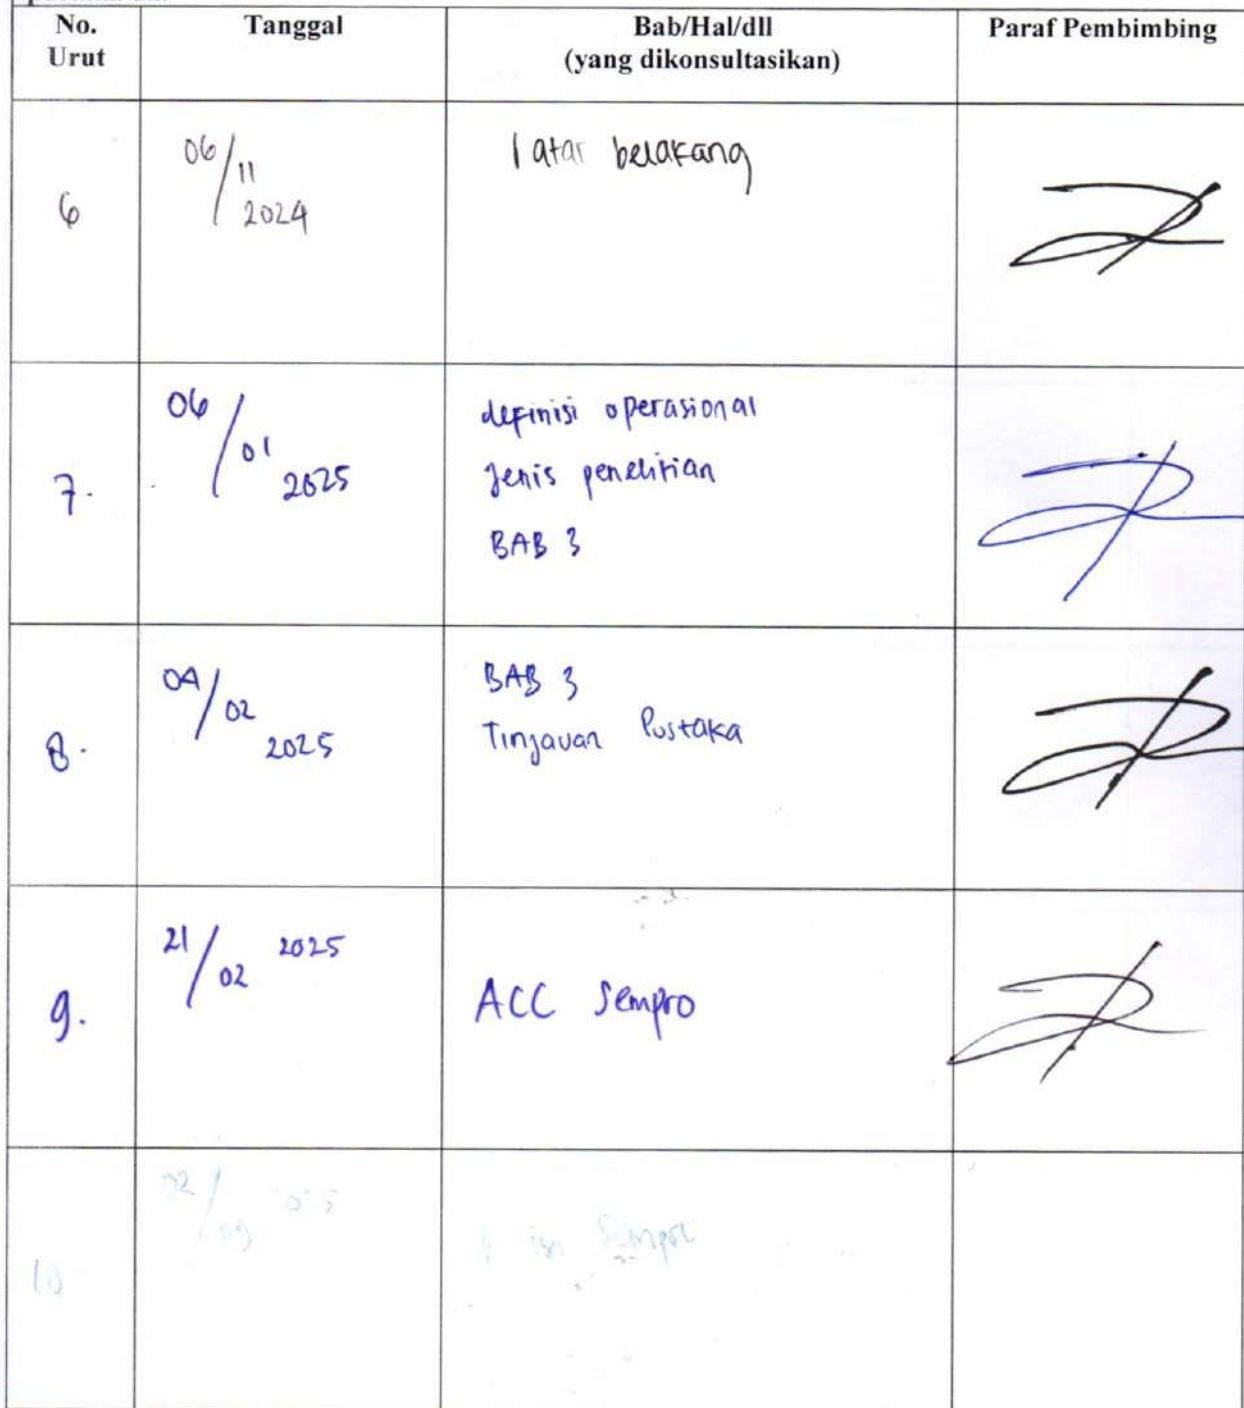 No. Urut
Tanggal
Bab/Hal/dll
(yang dikonsultasikan)
Paraf Pembimbing
6
06/11 2024
latar belakang
7.
06/01 2025
definisi operasional
Jenis penelitian
BAB 3
8.
04/02 2025
BAB 3
Tinjauan Pustaka
9.
21/02 2025
ACC Sempro
10
Sempro